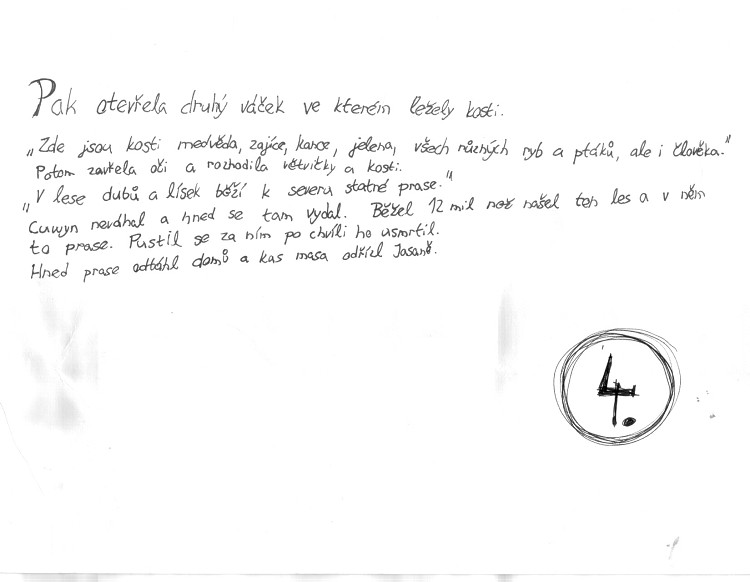 Pak otevřela druhý váček ve kterém ležely kosti.
„Zde jsou kosti medvěda, zajíce, kance, jelena, všech různých ryb a ptáků, ale i člověka."
Potom zavřela oči a rozhodila větvičky a kosti.
„V lese dubů a lísek běží k severu statné prase."
Cuwyn neváhal a hned se tam vydal. Běžel 12 mil než našel ten les a v něm
to prase. Pustil se za ním po chvíli ho usmrtil.
Hned prase odtáhl domů a kus masa odřízl Jasaně.
4.